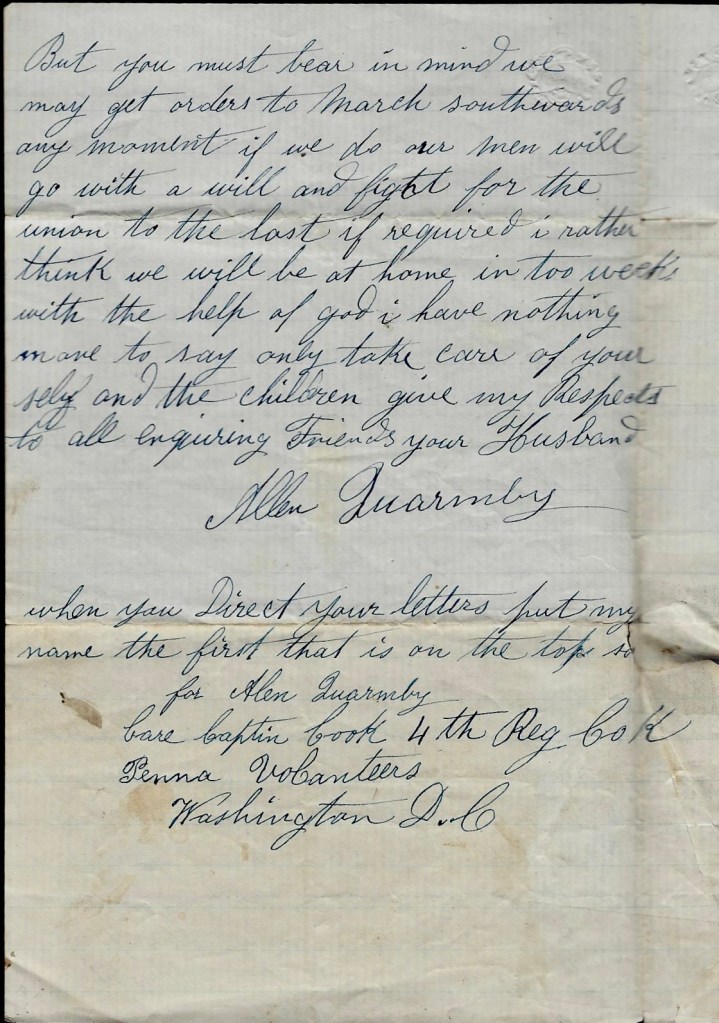 But you must bear in mind we
may get orders to March southwards
any moment if we do our men will
go with a will and fight for the
union to the last if required i rather
think we will be at home in too weeks
with the help of god i have nothing
more to say only take care of your
self and the children give my Respects
to all enquiring Friends your Husband
Allen Quarmby
when you Direct your letters put my
name the first that is on the top so
for Alen Quarmby
Care Captin Cook 4th Reg Co K
Penna Volanteers
Washington D.C